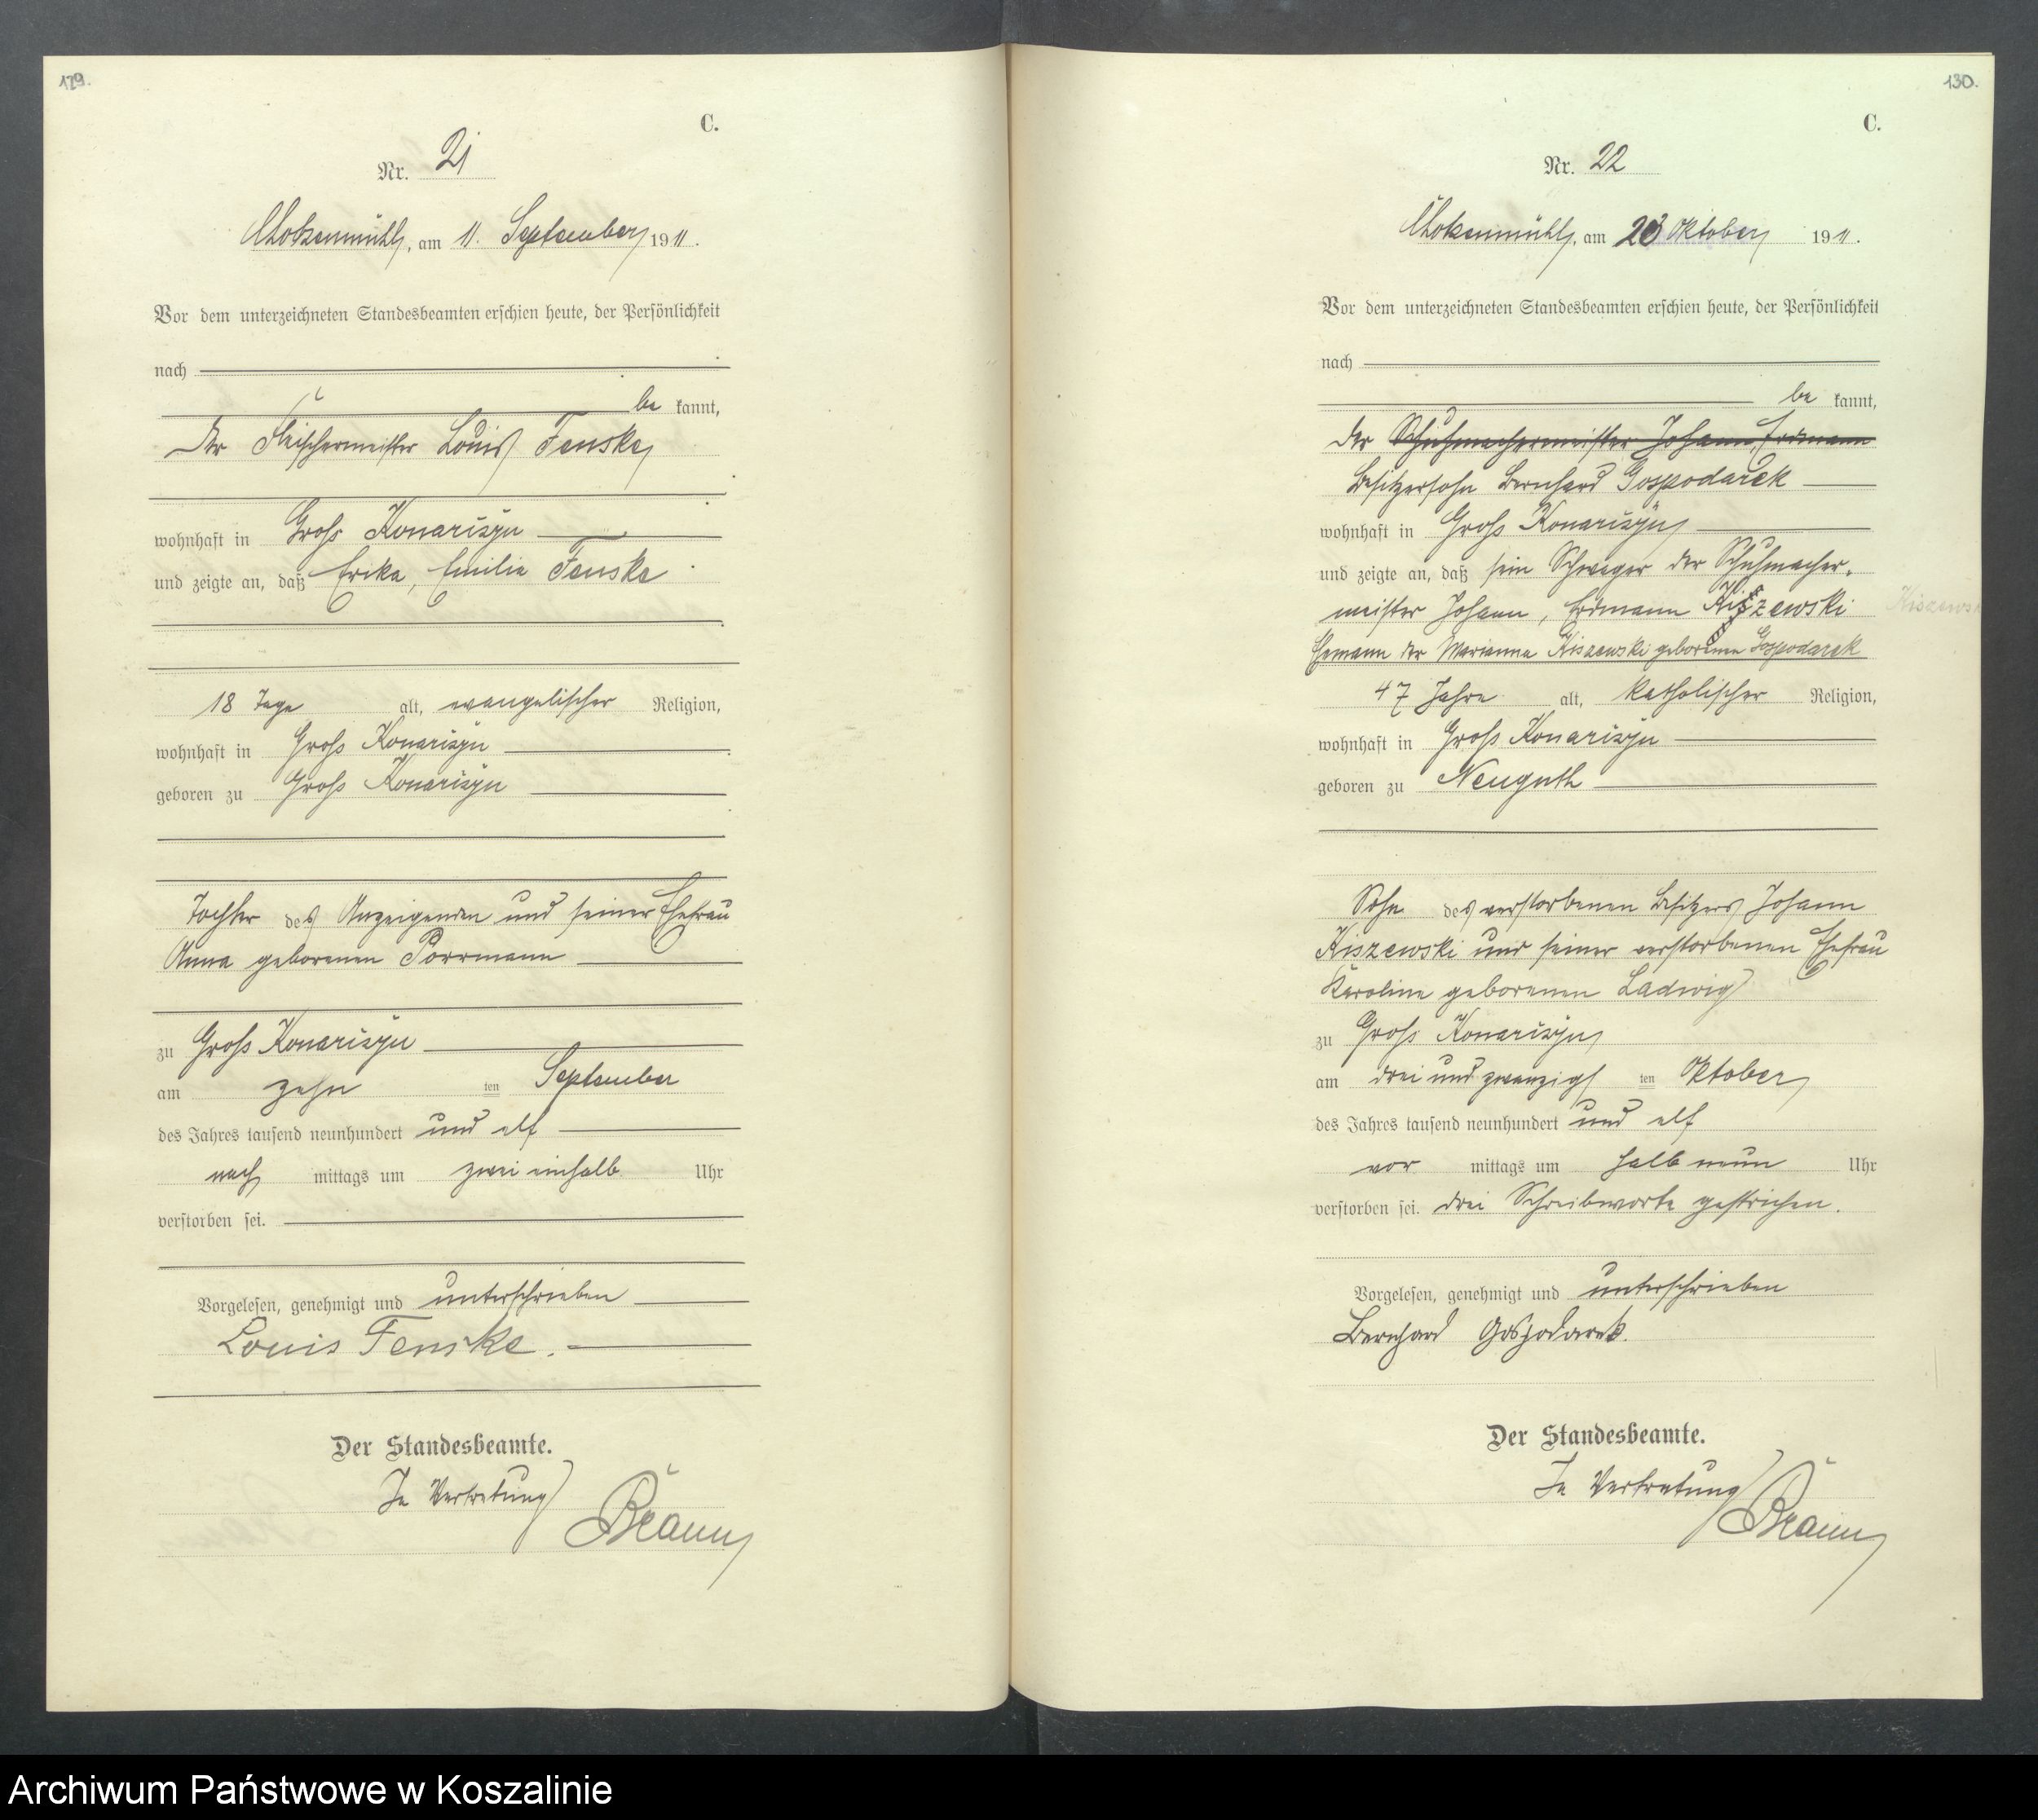 129.
C.
Nr. 21
Chotzenmühl, am 11. September 1911.
Vor dem unterzeichneten Standesbeamten erschien heute, der Persönlichkeit
nach
be kannt,
der Fleischermeister Louis Fenske
wohnhaft in Groß Konarczyn
und zeigte an, daß Erika, Emilie Fenske
18 Tage alt, evangelischer Religion,
wohnhaft in Groß Konarczyn
geboren zu Groß Konarczyn
Tochter des Anzeigenden und seiner Ehefrau
Anna geborenen Porrmann
zu Groß Konarczyn
am zehn ten September
des Jahres tausend neunhundert und elf
nach mittags um zwei einhalb Uhr
verstorben sei.
Vorgelesen, genehmigt und unterschrieben
Louis Fenske.
Der Standesbeamte.
In Vertretung
Braun
130.
C.
Nr. 22
Chotzenmühl, am 23 Oktober 1911.
Vor dem unterzeichneten Standesbeamten erschien heute, der Persönlichkeit
nach
be kannt,
der Schuhmachermeister Johann Erdmann
Besitzersohn Bernhard Gospodarek
wohnhaft in Groß Konarczyn
und zeigte an, daß sein Schwager der Schuhmacher-
meister Johann, Erdmann Kiszewski
Kiszewski
Ehemann der Marianna Kiszewski geborene Gospodarek
47 Jahre alt, katholischer Religion,
wohnhaft in Groß Konarczyn
geboren zu Neuguth
Sohn des verstorbenen Besitzers Johann
Kiszewski und seiner verstorbenen Ehefrau
Karoline geborenen Ladwig
zu Groß Konarczyn
am drei und zwanzigs ten Oktober
des Jahres tausend neunhundert und elf
vor mittags um halb neun Uhr
verstorben sei. drei Schreibworte gestrichen.
Vorgelesen, genehmigt und unterschrieben
Bernhard Gospodarek.
Der Standesbeamte.
In Vertretung
Braun
Archiwum Państwowe w Koszalinie